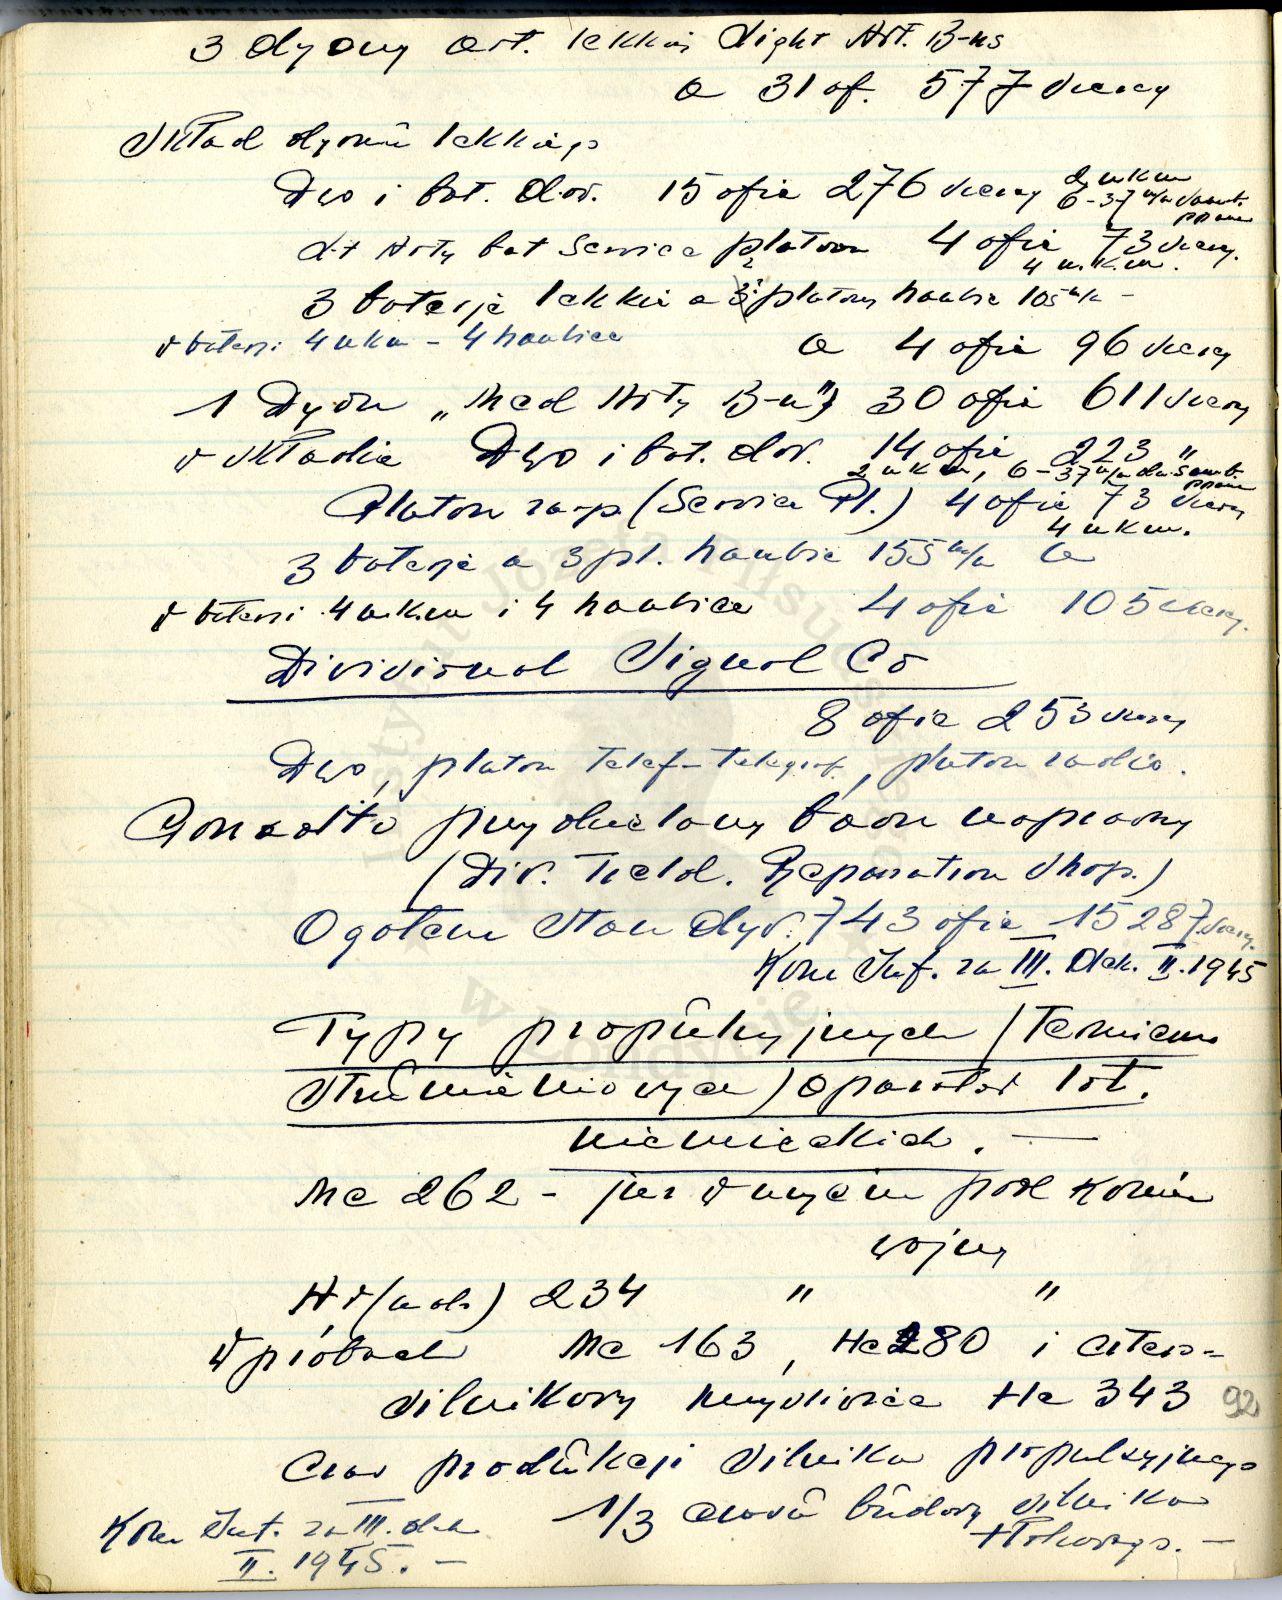 3 dyony art. lekkiej Light Art. B-ns
a 31 of. 577 szereg
Skład dyonu lekkiego
Dwo i bat. dow. 15 ofic 276 szereg 2 nkm
6-37 m/m samob. ppanc
Lt Arty bat Service platoon 4 ofic 73 szereg.
4 n.k.m.
3 baterje lekkie a 2 platony haubic 105 m/m –
w baterji 4 nkm – 4 haubice a 4 ofic 96 szereg
1 Dyon „Med Arty B-n") 30 ofic 611 szereg
w składzie Dwo i bat. dow. 14 ofic 223 "
2 nkm, 6-37 m/m dz. samob. ppanc
Platon zaop (Service Pl.) 4 ofic 73 szereg
4 nkm.
3 baterje a 3 pl. haubic 155 m/m a
w baterji 4 n.k.m i 4 haubice 4 ofic 105 szereg.
Divisional Signal Co
8 ofic 253 szereg
Dwo, platon telef-telegraf., platon radio.
Ponadto przydzielony baon naprawy
(Div. Field. Reparation Shop.)
Ogółem stan dyw. 743 ofic 15287 szereg.
Kom Inf. za III. dek. II. 1945
Typy propulsyjnych (termicznie
strumieniowych) aparatów lot.
niemieckich. —
Me 262 – już w użyciu pod koniec
wojny
Ar (ado) 234 " "
W próbach Me 163, He 280 i cztero-
silnikowy myśliwiec He 343
92
Czas produkcji silnika propulsyjnego
1/3 czasu budowy silnika
tłokowego. –
Kom Inf. za III. dek
II. 1945. –